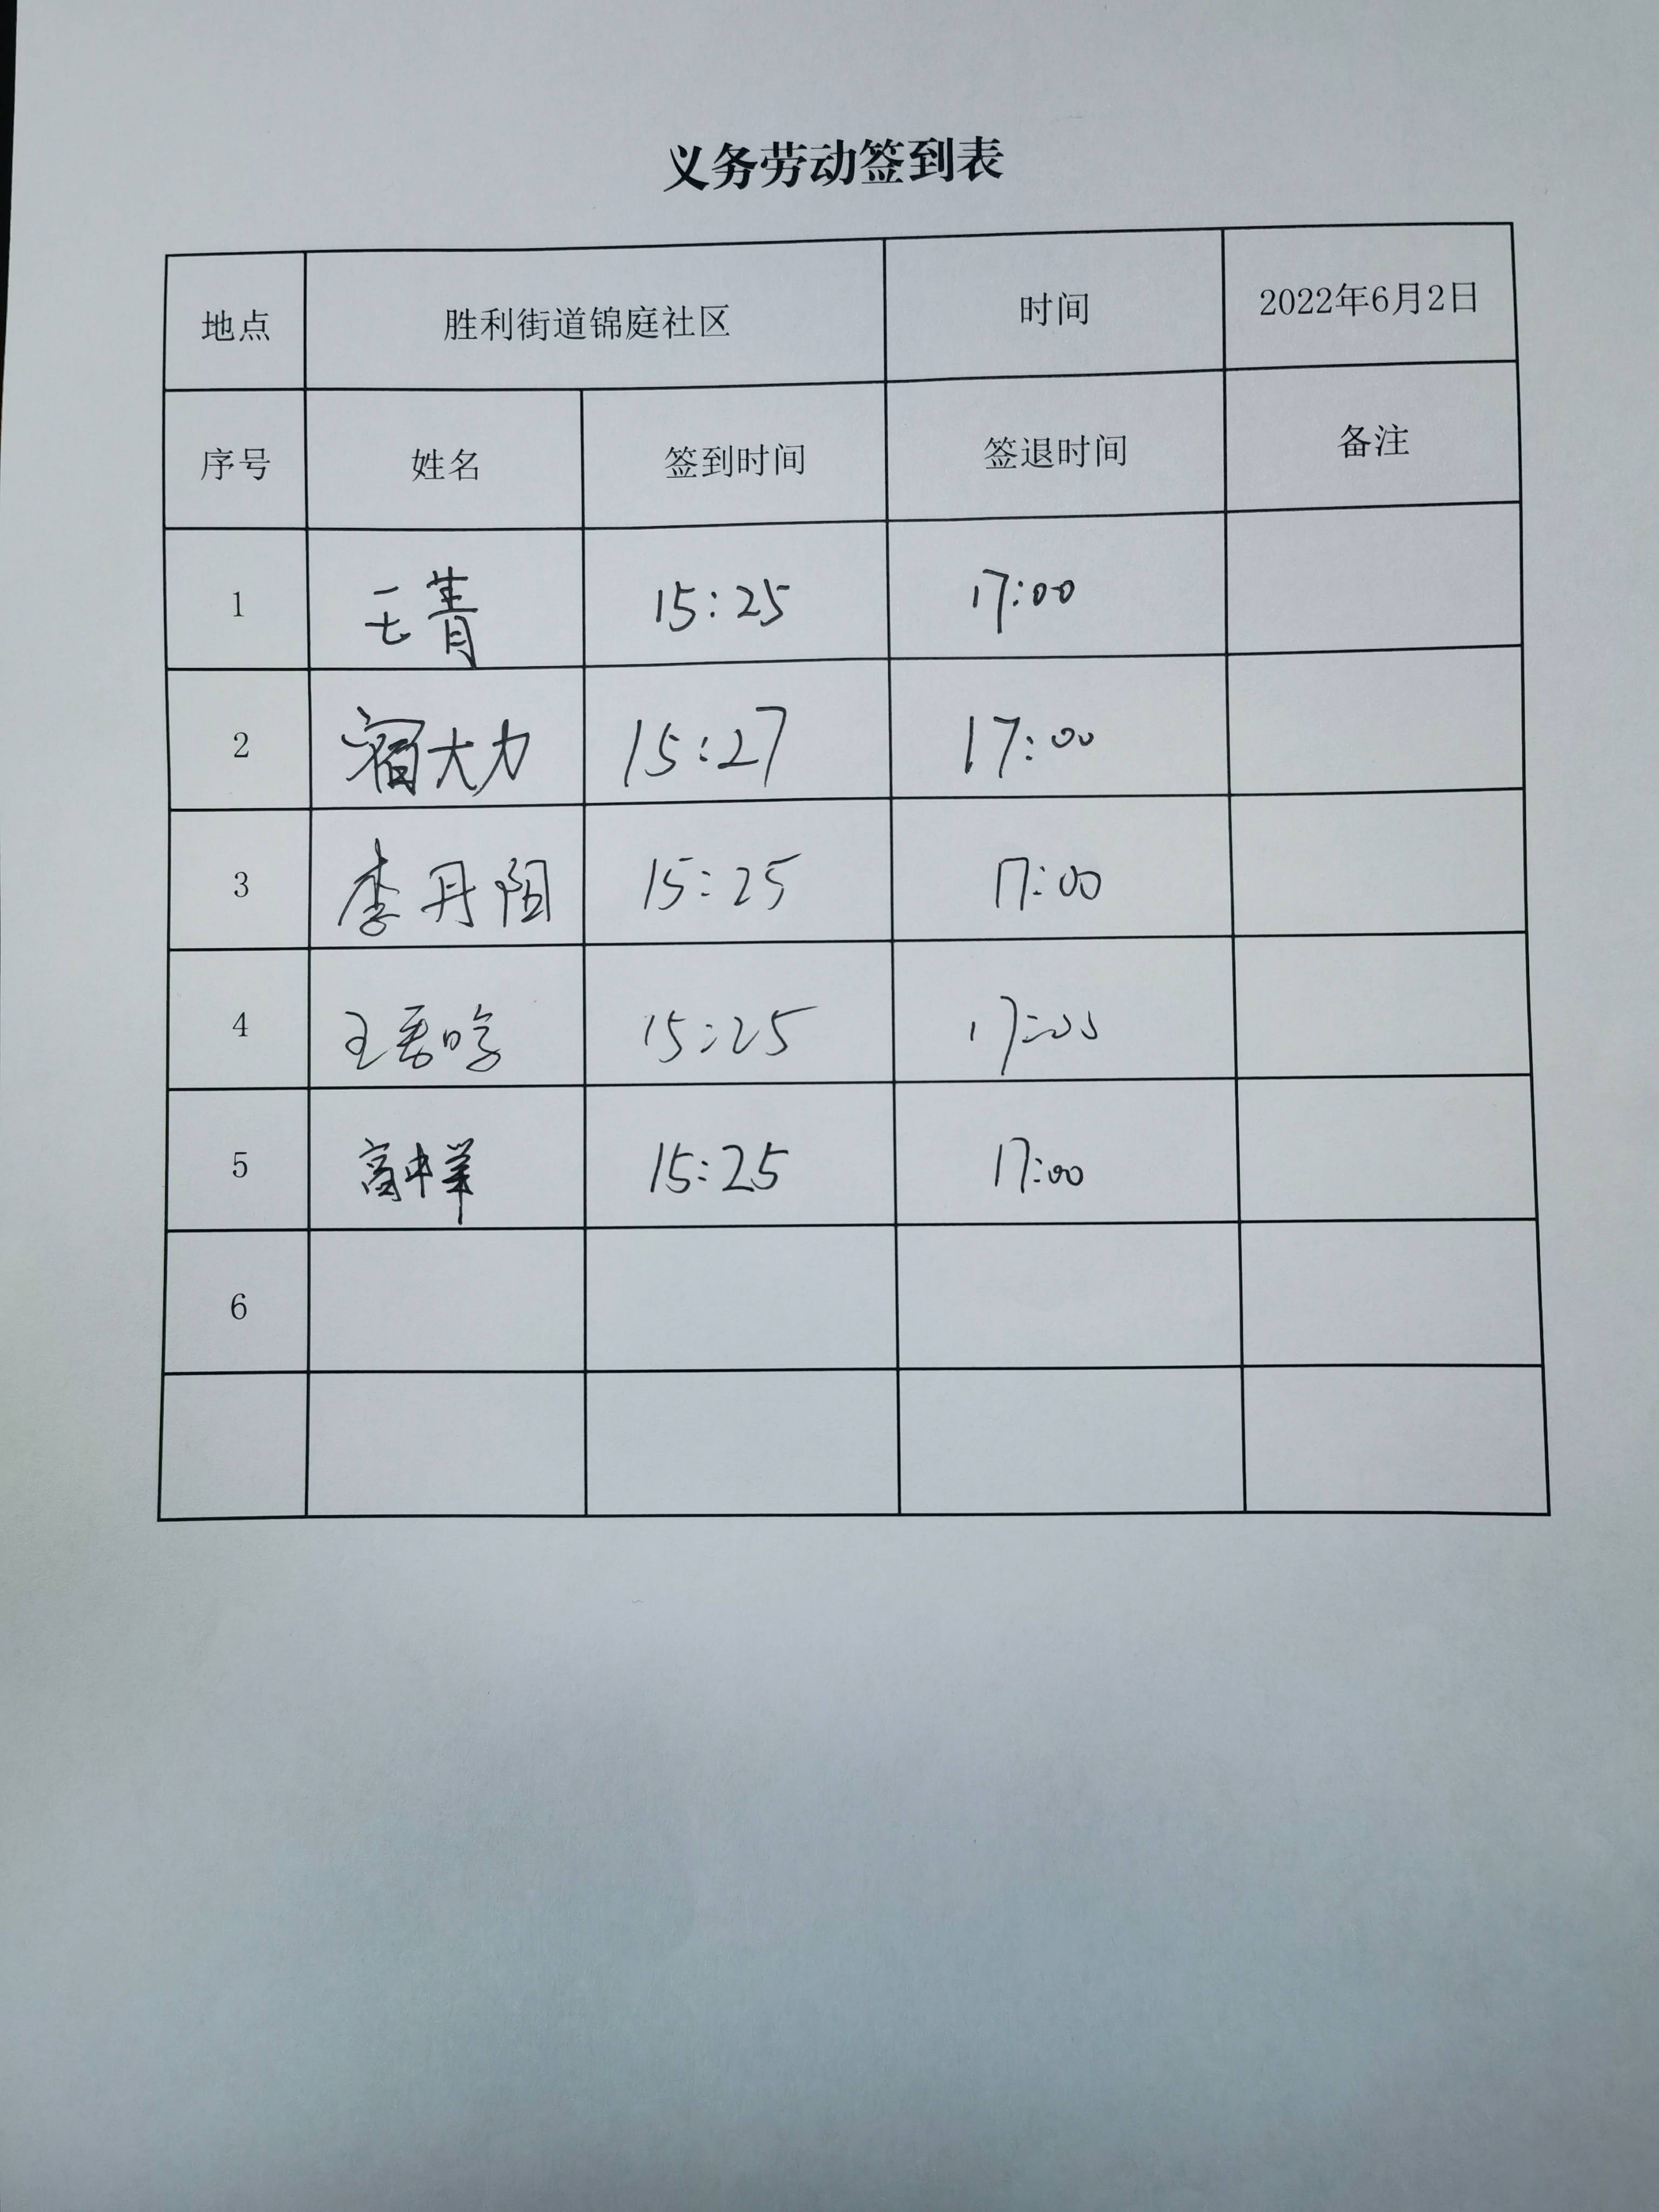 义务劳动签到表
地点 胜利街道锦庭社区 时间 2022年6月2日
序号 姓名 签到时间 签退时间 备注
1 王青 15:25 17:00
2 宿大力 15:27 17:00
3 李丹阳 15:25 17:00
4 王 15:25 17:00
5 高中 15:25 17:00
6